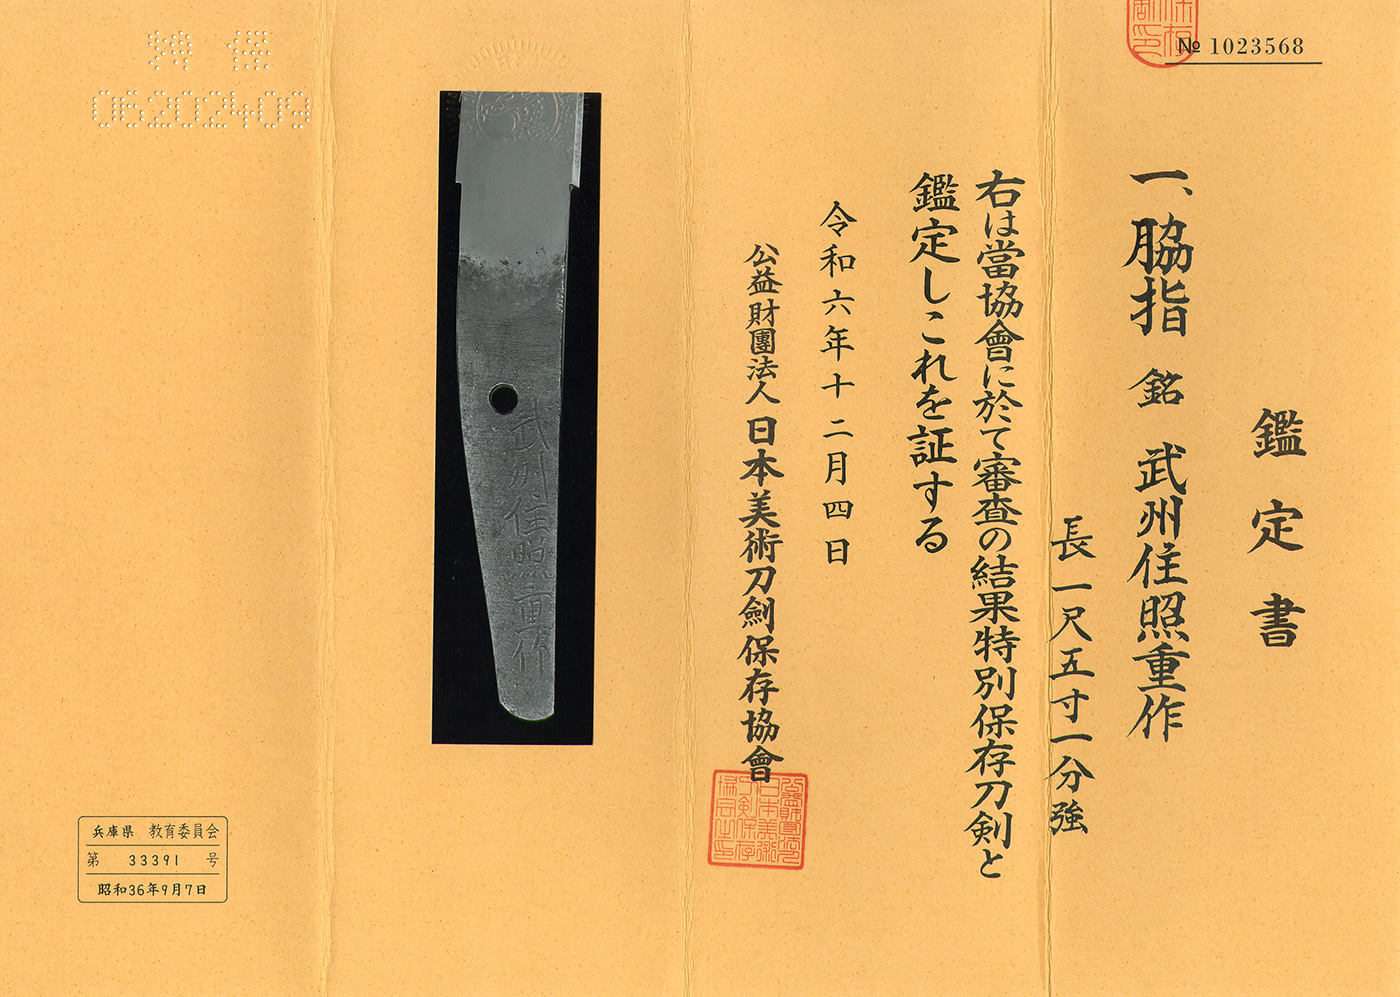 № 1023568
鑑定書
一、脇指 銘 武州住照重作
長一尺五寸一分強
右は當協會に於て審査の結果特別保存刀剣と
鑑定しこれを証する
令和六年十二月四日
公益財團法人 日本美術刀劍保存協會
武州住照重作
特保
06202409
兵庫県 教育委員会
第 33391 号
昭和36年9月7日